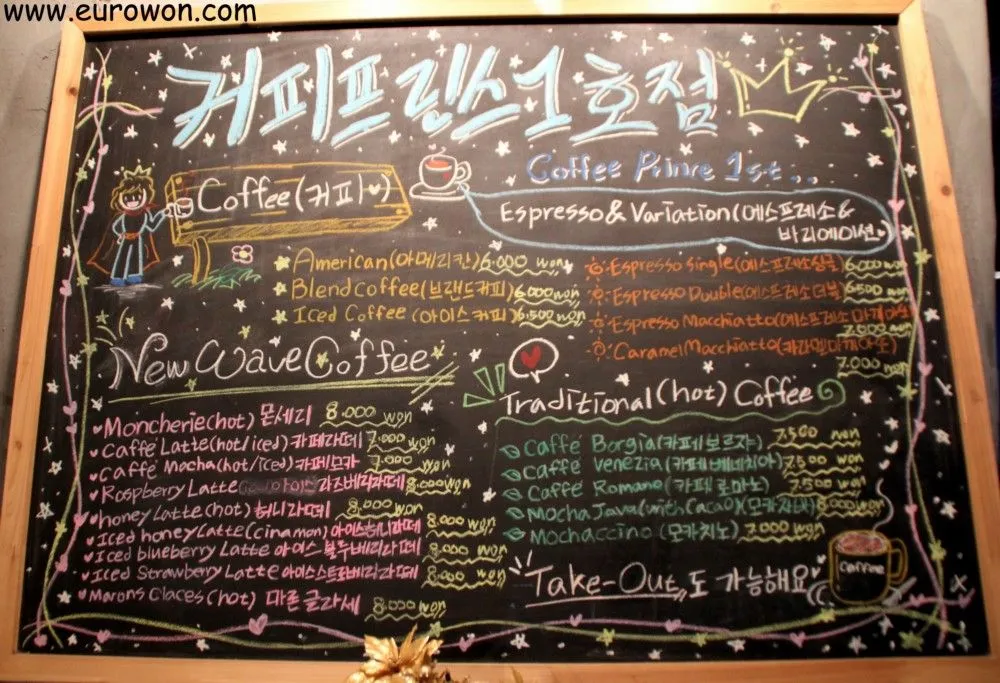 www.eurowon.com
커피프린스1호점
Coffee Prince 1st..
Coffee(커피♥)
American(아메리칸) 6.000 won
Blend Coffee(브랜드커피) 6.000 won
Iced Coffee (아이스커피) 6.500 won
Espresso & Variation(에스프레소 &
바리에이션♥)
Espresso Single(에스프레소싱글) 6.000 won
Espresso Double(에스프레소더블) 6500 won
Espresso Macchiatto(에스프레소 마끼아또)
7.000 won
Caramel Macchiatto(카라멜마끼아또)
7.000 won
New Wave Coffee
Moncherie(hot) 몬세리 8.000 won
Caffé Latte(hot/iced) 카페라떼 7.000 won
Caffé Mocha(hot/iced) 카페모카 7.000 won
Raspberry Latte 라즈베리라떼 8.000 won
honey Latte(hot) 허니라떼 8.000 won
Iced honey Latte(cinamon) 아이스허니라떼 8.000 won
Iced blueberry Latte 아이스 블루베리라떼 8.000 won
Iced Strawberry Latte 아이스스트로베리라떼 8.000 won
Marons Glaces(hot) 마론 글라세 8.000 won
Traditional(hot) Coffee
Caffé Borgia(카페보르쟈) 7.500 won
Caffé Venezia(카페베네치아) 7.500 won
Caffé Romano(카페로마노) 7.500 won
Mocha Java(with Cacao)(모카자바) 8.000 won
Mochaccino (모카치노) 7.000 won
Take-Out도 가능해요
Coffee